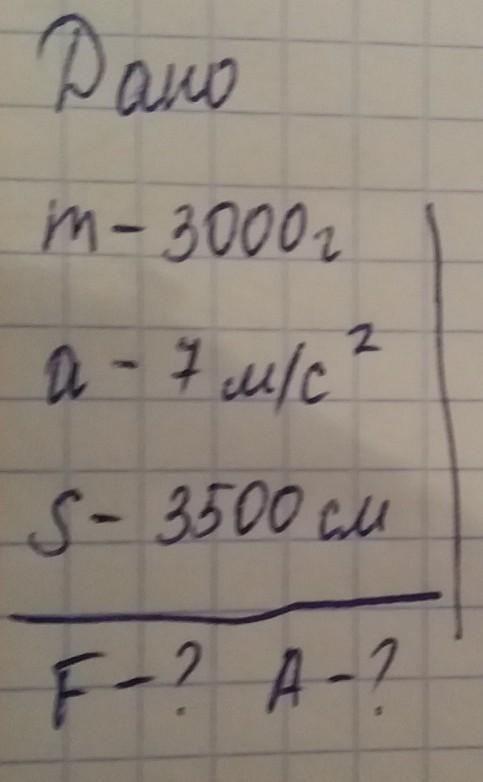 Дано
m - 3000г
a - 7 м/с²
S - 3500 см
F - ? A - ?